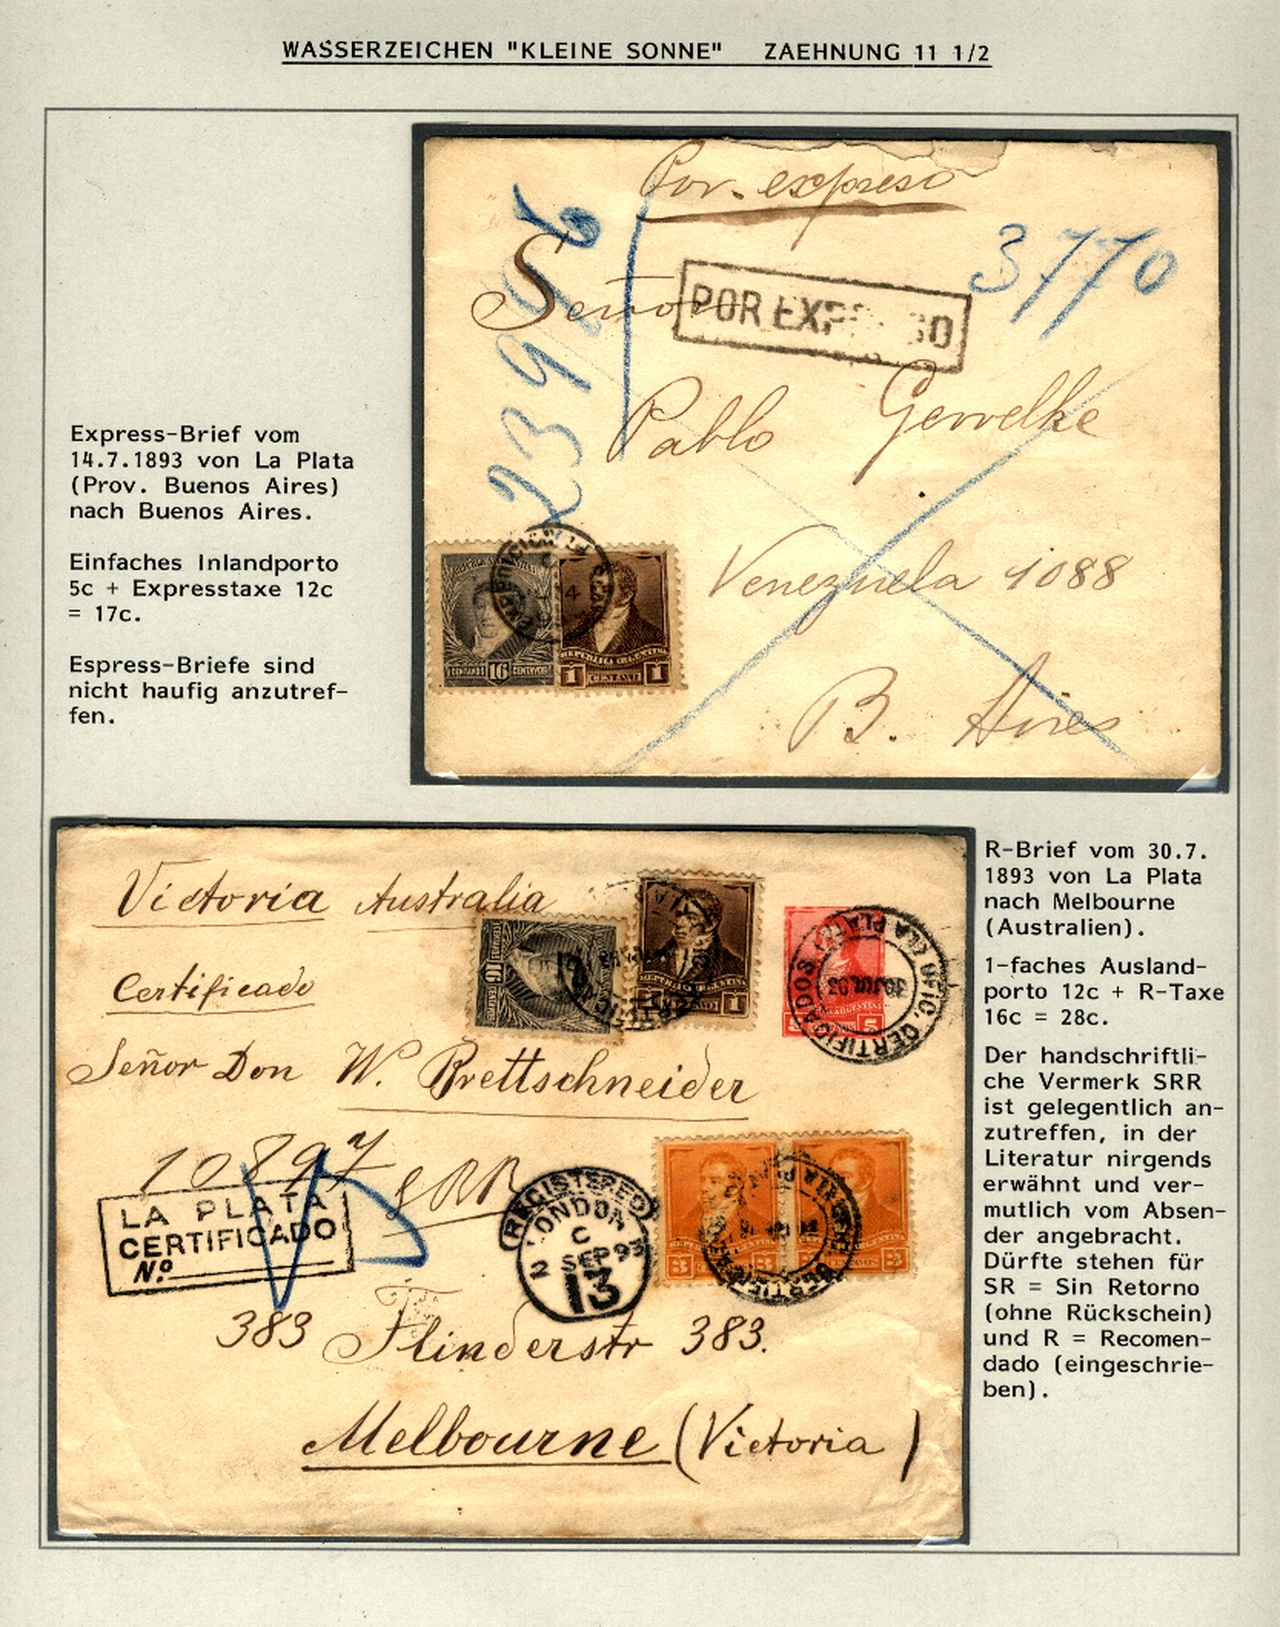 WASSERZEICHEN "KLEINE SONNE" ZAEHNUNG 11 1/2
Por expreso
3770
23976
Señor
POR EXP SO
Pablo Gewelke
Venezuela 1088
B. Aires
CENTAVOS 16 CENTAVOS
REPUBLICA ARGENTINA
1 CENTAVO 1
Express-Brief vom
14.7.1893 von La Plata
(Prov. Buenos Aires)
nach Buenos Aires.
Einfaches Inlandporto
5c + Expresstaxe 12c
= 17c.
Espress-Briefe sind
nicht haufig anzutref-
fen.
Victoria Australia
Certificado
16
REPUBLICA ARGENTINA
1
5
OFIC. CERTIFICADOS (LA PLATA)
30 JUL 93
Señor Don W. Brettschneider
10897 SRR
LA PLATA
CERTIFICADO
Nº
REGISTERED
LONDON
C
2 SEP 93
13
3 3 3 3
383 Flinderstr 383.
Melbourne (Victoria)
R-Brief vom 30.7.
1893 von La Plata
nach Melbourne
(Australien).
1-faches Ausland-
porto 12c + R-Taxe
16c = 28c.
Der handschriftli-
che Vermerk SRR
ist gelegentlich an-
zutreffen, in der
Literatur nirgends
erwähnt und ver-
mutlich vom Absen-
der angebracht.
Dürfte stehen für
SR = Sin Retorno
(ohne Rückschein)
und R = Recomen-
dado (eingeschrie-
ben).